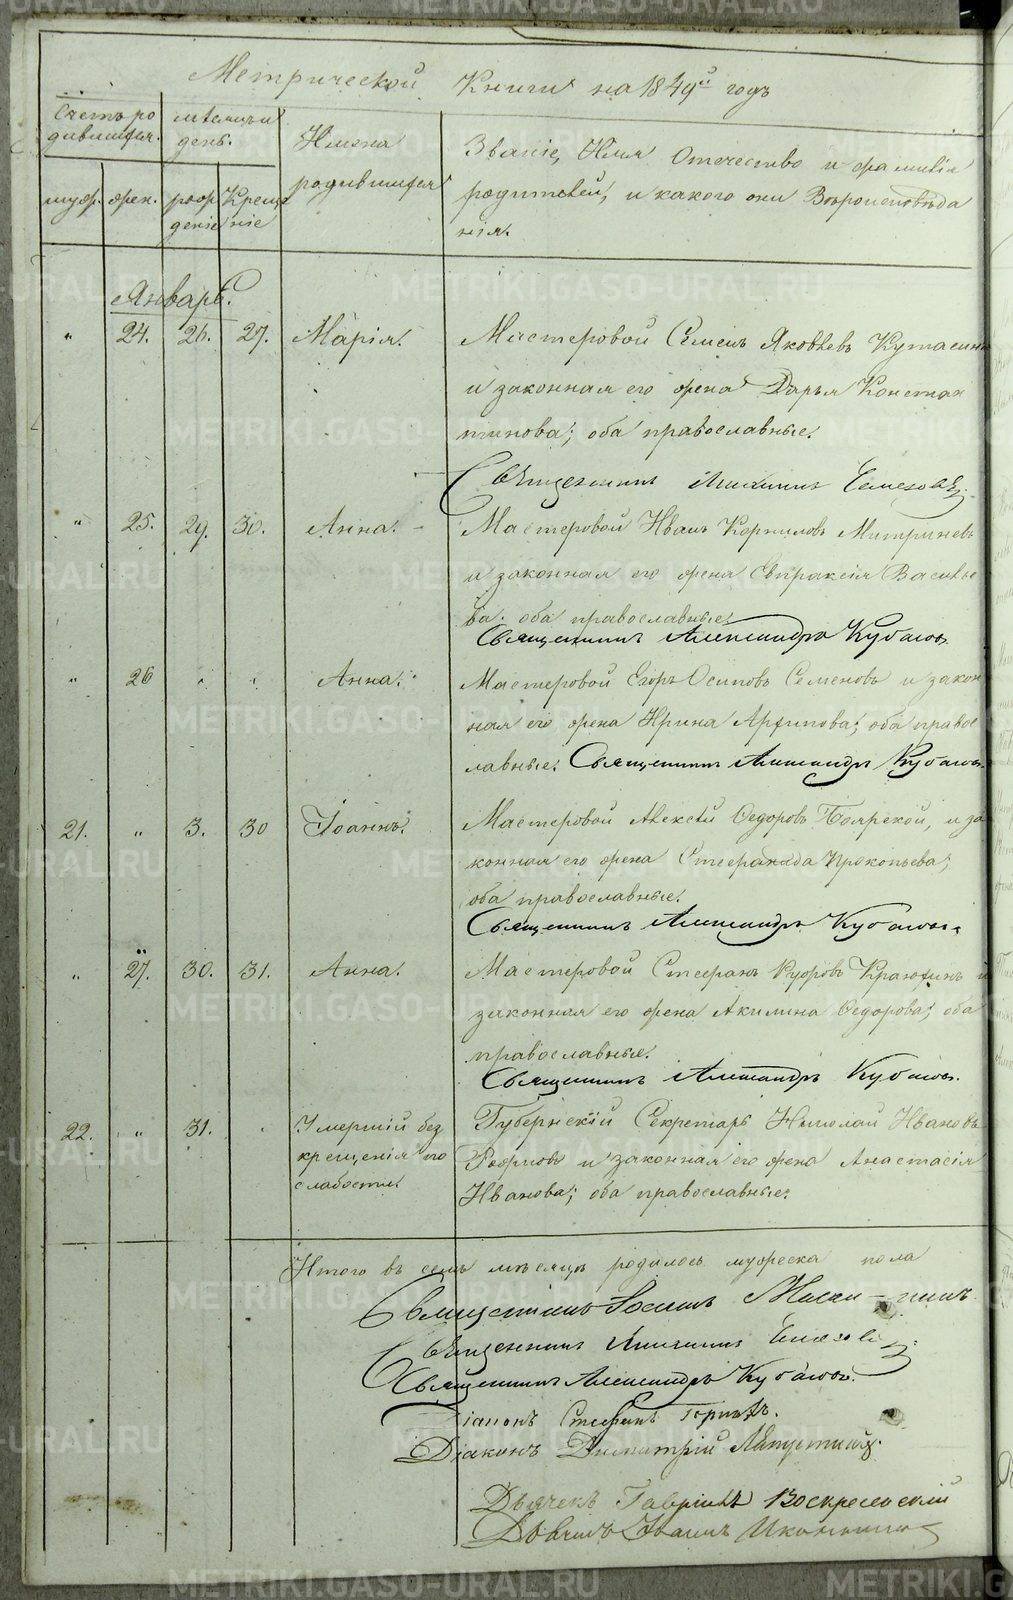 Метрической Книги на 1849й годъ
Счетъ ро
дившихся.
мѣсяцъ и
день.
Имена
родившихся
Званіе, Имя Отечество и фамилія
родителей, и какого они Вѣроисповѣда
нія.
муж. жен. рож
деніе Креще
ніе
Январь.
" 24. 26. 27. Марія. Мастеровой Семенъ Яковлевъ
и законная его жена Дарья Констан
тинова; оба православные.
Священникъ
" 25. 29. 30. Анна. Мастеровой Иванъ Корниловъ
и законная его жена Евпраксія Василье
ва. оба православные.
Священникъ Александръ Кубасовъ
" 26 " " Анна. Мастеровой Егоръ Осиповъ Семеновъ и закон
ная его жена Ирина Архипова; оба правос
лавные. Священникъ Александръ Кубасовъ.
21. " 3. 30 Іоаннъ. Мастеровой Алексѣй Ѳедоровъ Боярской, и за
конная его жена Стефанида Прокопьева;
оба православные.
Священникъ Александръ Кубасовъ.
" 27. 30. 31. Анна. Мастеровой Стефанъ и
законная его жена Акилина Ѳедорова; оба
православные.
Священникъ Александръ Кубасовъ.
22. " 31. " Умершій без
крещенія по
слабости. Губернскій Секретарь Николай Ивановъ
и законная его жена Анастасія
Иванова; оба православные.
Итого въ семъ мѣсяцѣ родилось мужеска пола
Священникъ
Священникъ
Священникъ Александръ Кубасовъ.
Діаконъ Стефанъ
Діаконъ Димитрій
Дьячекъ Гавріилъ Воскресенскій
Дьячекъ Иванъ
METRIKI.GASO-URAL.RU